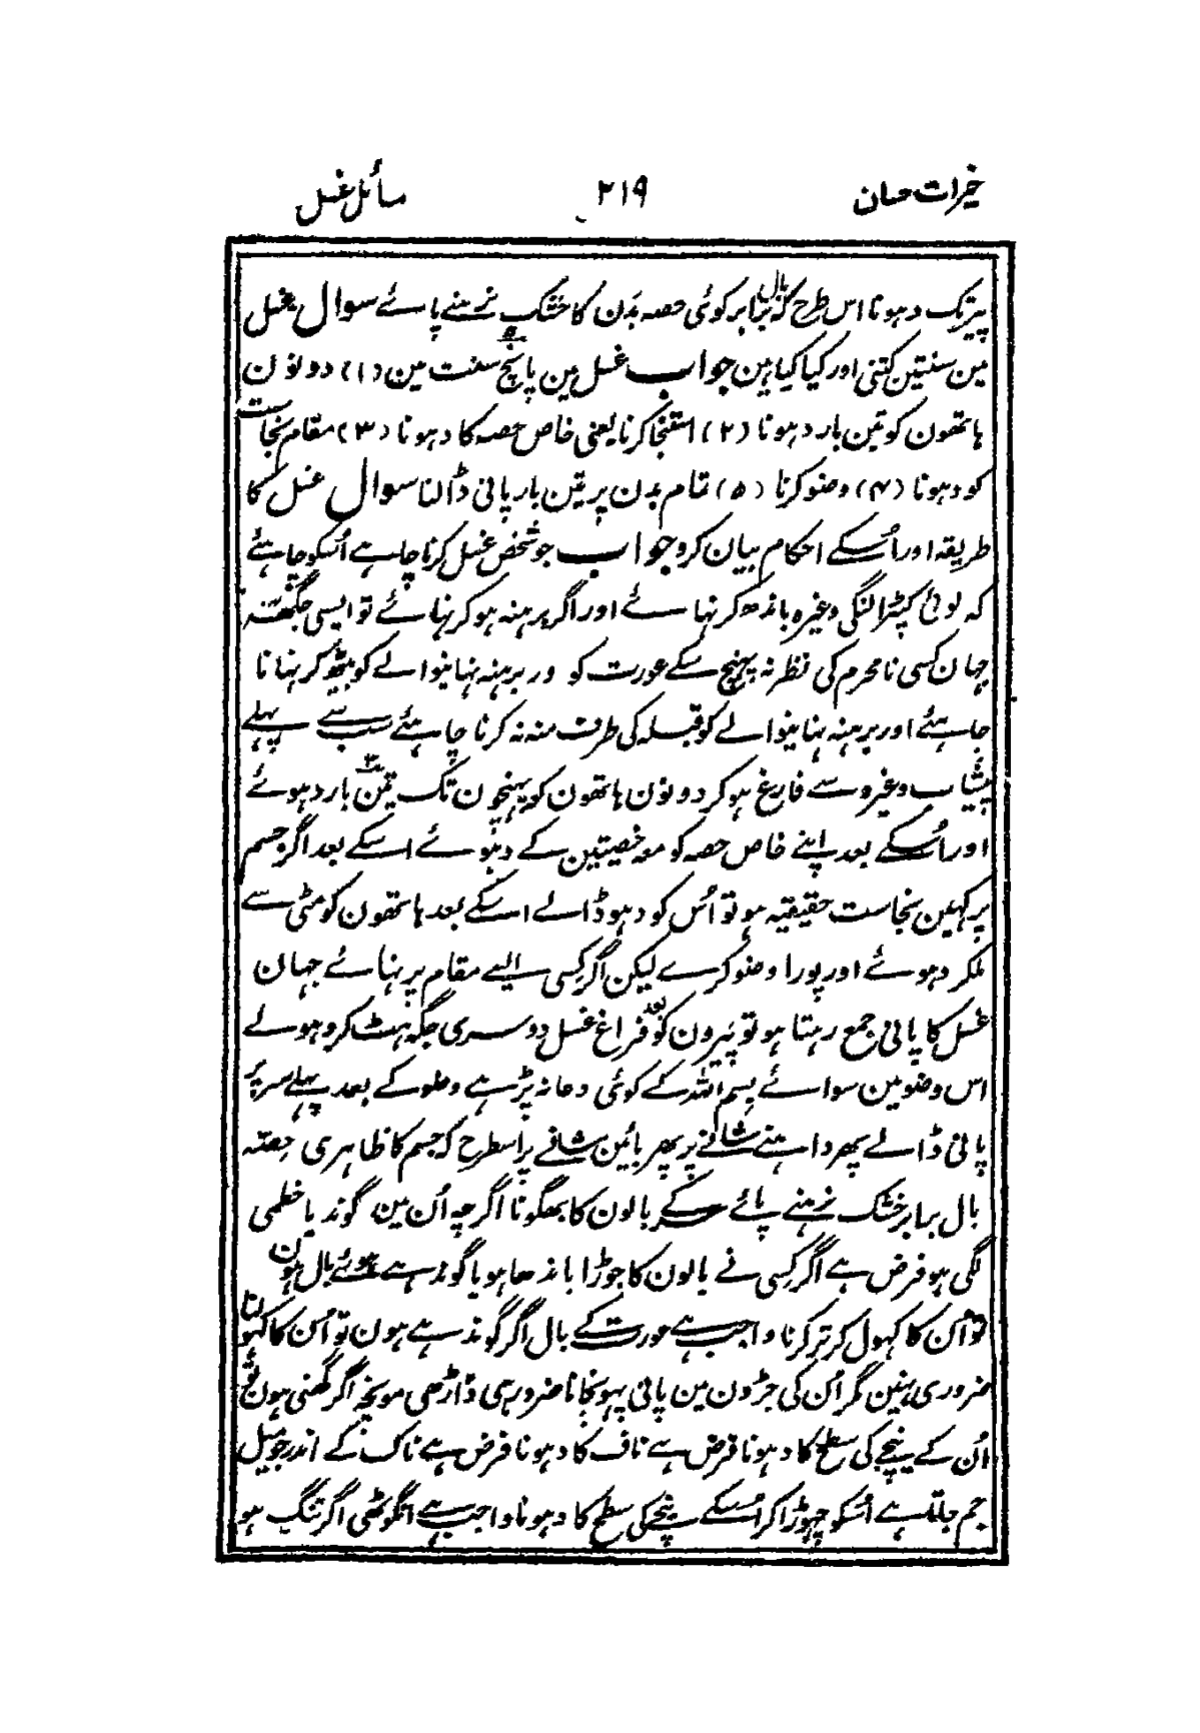 خیرات حسان ۲۱۹ مسائل غسل
پیر تک دہونا اس طرح کہ بال برابر کوئی حصہ بدن کا خشک نرہنے پائے سوال غسل
مین سنتین کتنی اور کیا کیا ہین جواب غسل مین پانچ سنت مین (۱) دونون
ہاتھون کو تین بار دہونا (۲) استنجا کرنا یعنی خاص حصہ کا دہونا (۳) مقام نجاست
کو دہونا (۴) وضو کرنا (۵) تمام بدن پر تین بار پانی ڈالنا سوال غسل کا
طریقہ اور اُسکے احکام بیان کرو جواب جو شخص غسل کرنا چاہے اُسکو چاہئے
کہ کوئی کپڑا لنگی وغیرہ باندھ کر نہائے اور اگر برہنہ ہو کر نہائے تو ایسی جگھ
جہان کسی نامحرم کی نظر نہ پہنچ سکے عورت کو ور برہنہ نہانیوالے کو بیٹھ کر نہانا
چاہئے اور برہنہ نہانیوالے کو قبلہ کی طرف منہ نہ کرنا چاہئے سب سے پہلے
پیشاب وغیرہ سے فارغ ہو کر دونون ہاتھون کو پہنچون تک تین بار دہوئے
اور اُسکے بعد اپنے خاص حصہ کو مع خصیتین کے دہوئے اسکے بعد اگر جسم
پر کہین نجاست حقیقیہ ہو تو اُس کو دہو ڈالے اسکے بعد ہاتھون کو مٹی سے
ملکر دہوئے اور پورا وضو کرے لیکن اگر کسی ایسے مقام پر نہائے جہان
غسل کا پانی جمع رہتا ہو تو پیرون کو بعد فراغ غسل دوسری جگہ ہٹ کر دہولے
اس وضو مین سوائے بسم اللہ کے کوئی دعا نہ پڑہے وضو کے بعد پہلے سر پر
پانی ڈالے پھر داہنے شانے پر پھر بائین شانے پر اسطرح کہ جسم کا ظاہری حصّہ
بال برابر خشک نرہنے پائے سر کے بالون کا بھگونا اگرچہ اُن مین گوند یا خطمی
لگی ہو فرض ہے اگر کسی نے بالون کا جوڑا باندھا ہو یا گوندہے ہوئے بال ہون
تو اُن کا کہول کر تر کرنا واجب ہے عورت کے بال اگر گوندہے ہون تو اُن کا کہولنا
ضروری نہین مگر اُن کی جڑون مین پانی پہونچانا ضرور ہی ڈاڑھی مونچہ اگر گھنی ہون تو
اُن کے نیچے کی سطح کا دہونا فرض ہے ناف کا دہونا فرض ہے ناک کے اندر جو میل
جم جاتا ہے اُسکو چہوڑا کر اُسکے نیچے کی سطح کا دہونا واجب ہے انگوٹھی اگر تنگ ہو